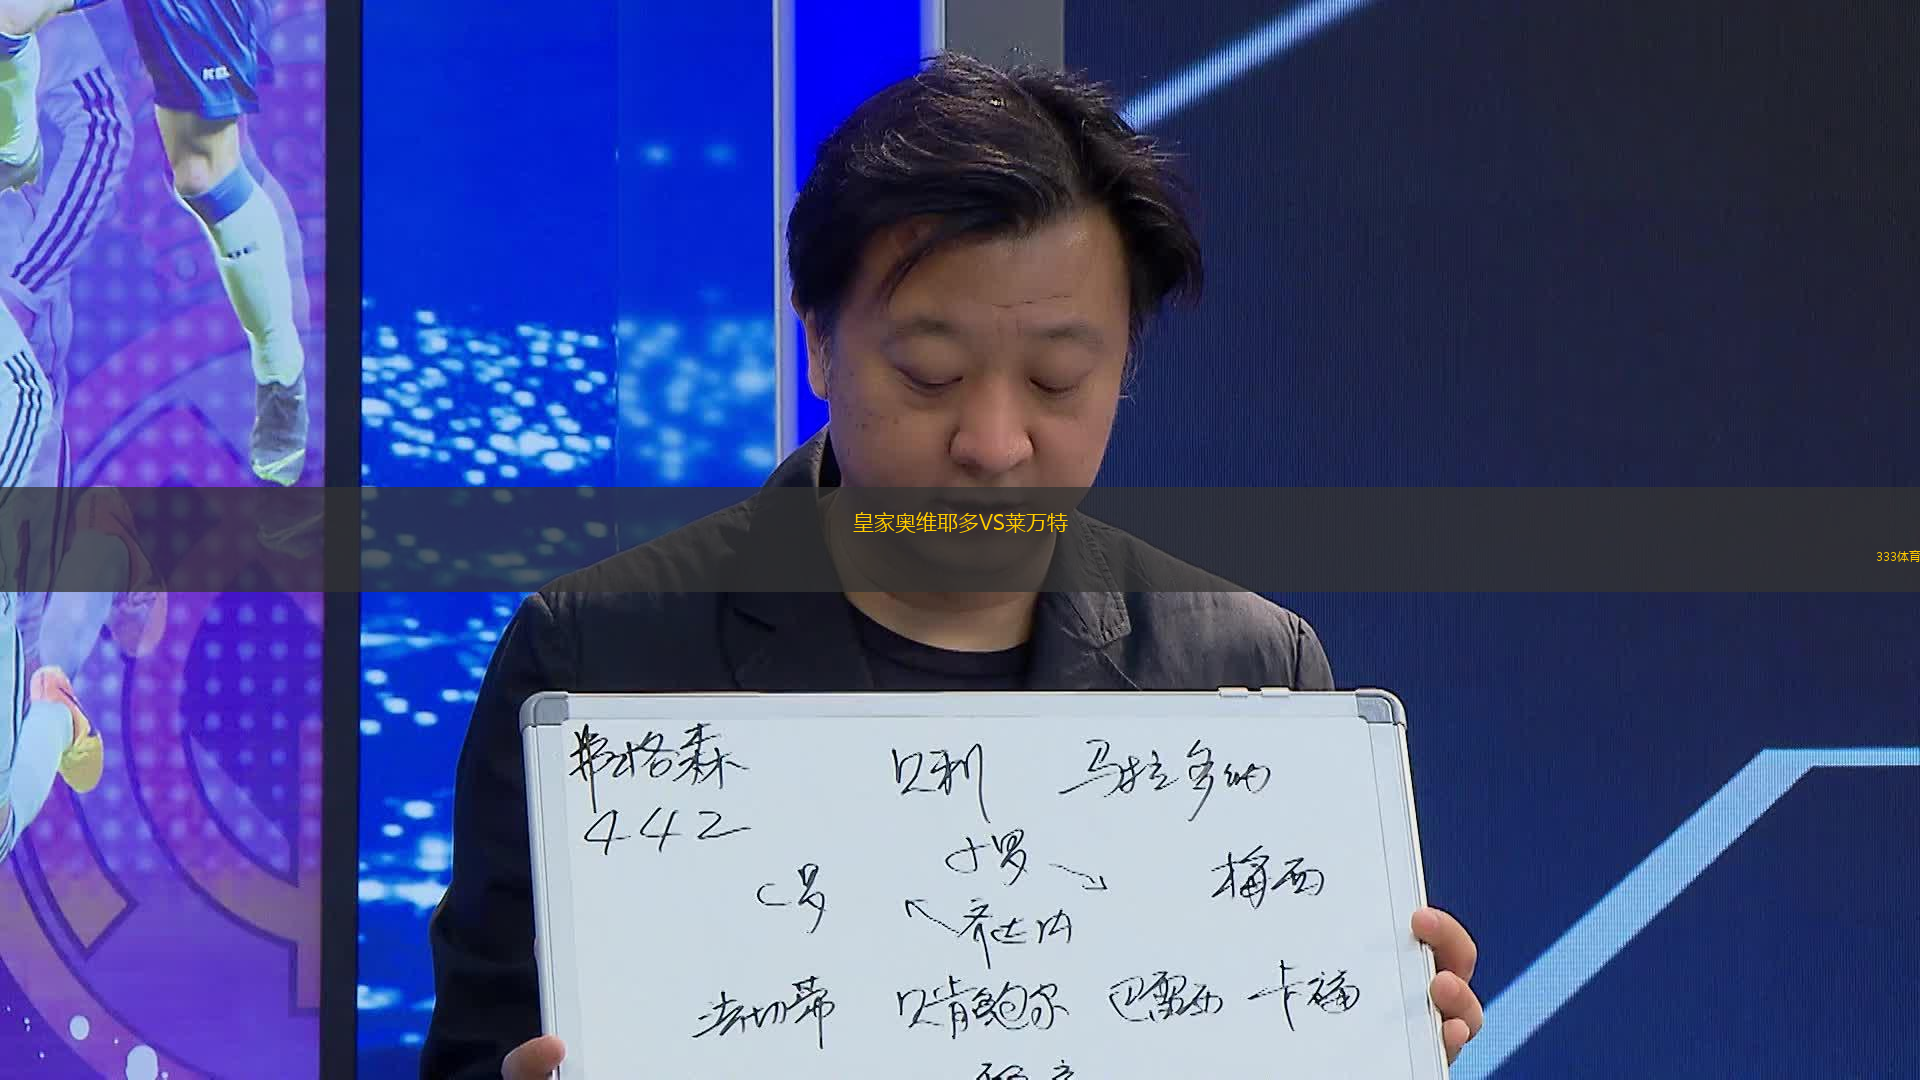 KEL
皇家奥维耶多VS莱万特
333体育
弗格森 贝利 马拉多纳
442
小罗
C罗 梅西
齐达内
法切蒂 贝肯鲍尔 巴雷西 卡福